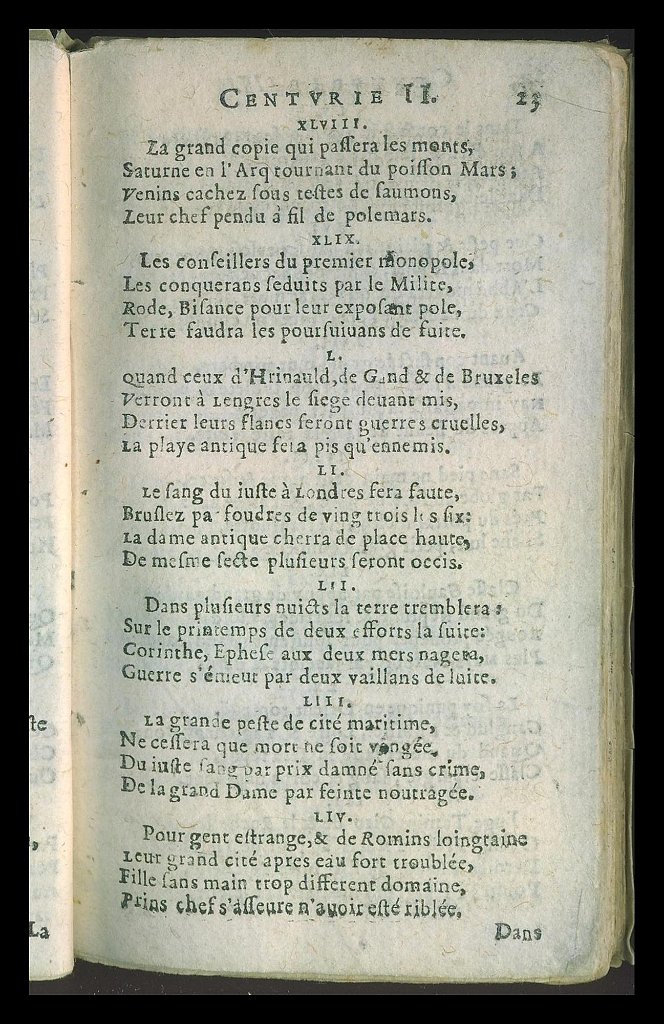 CENTVRIE II. 23
XLVIII.
La grand copie qui paſſera les monts,
Saturne en l'Arq tournant du poiſſon Mars;
Venins cachez ſous teſtes de ſaumons,
Leur chef pendu à fil de polemars.
XLIX.
Les conſeillers du premier monopole,
Les conquerans ſeduits par le Milite,
Rode, Biſance pour leur expoſant pole,
Terre faudra les pourſuiuans de fuite.
L.
Quand ceux d'Hrinauld, de Gand & de Bruxeles
Verront à Lengres le ſiege deuant mis,
Derrier leurs flancs ſeront guerres cruelles,
La playe antique fera pis qu'ennemis.
LI.
Le ſang du iuſte à Londres fera faute,
Bruſlez par foudres de ving trois les ſix:
La dame antique cherra de place haute,
De meſme ſecte pluſieurs ſeront occis.
LII.
Dans pluſieurs nuicts la terre tremblera:
Sur le printemps de deux efforts la ſuite:
Corinthe, Epheſe aux deux mers nagera,
Guerre s'émeut par deux vaillans de luite.
LIII.
La grande peſte de cité maritime,
Ne ceſſera que mort ne ſoit vengée,
Du iuſte ſang par prix damné ſans crime,
De la grand Dame par feinte noutragée.
LIV.
Pour gent eſtrange, & de Romins loingtaine
Leur grand cité apres eau fort troublée,
Fille ſans main trop different domaine,
Prins chef s'aſſeure n'auoir eſté riblée.
Dans
te
,
La